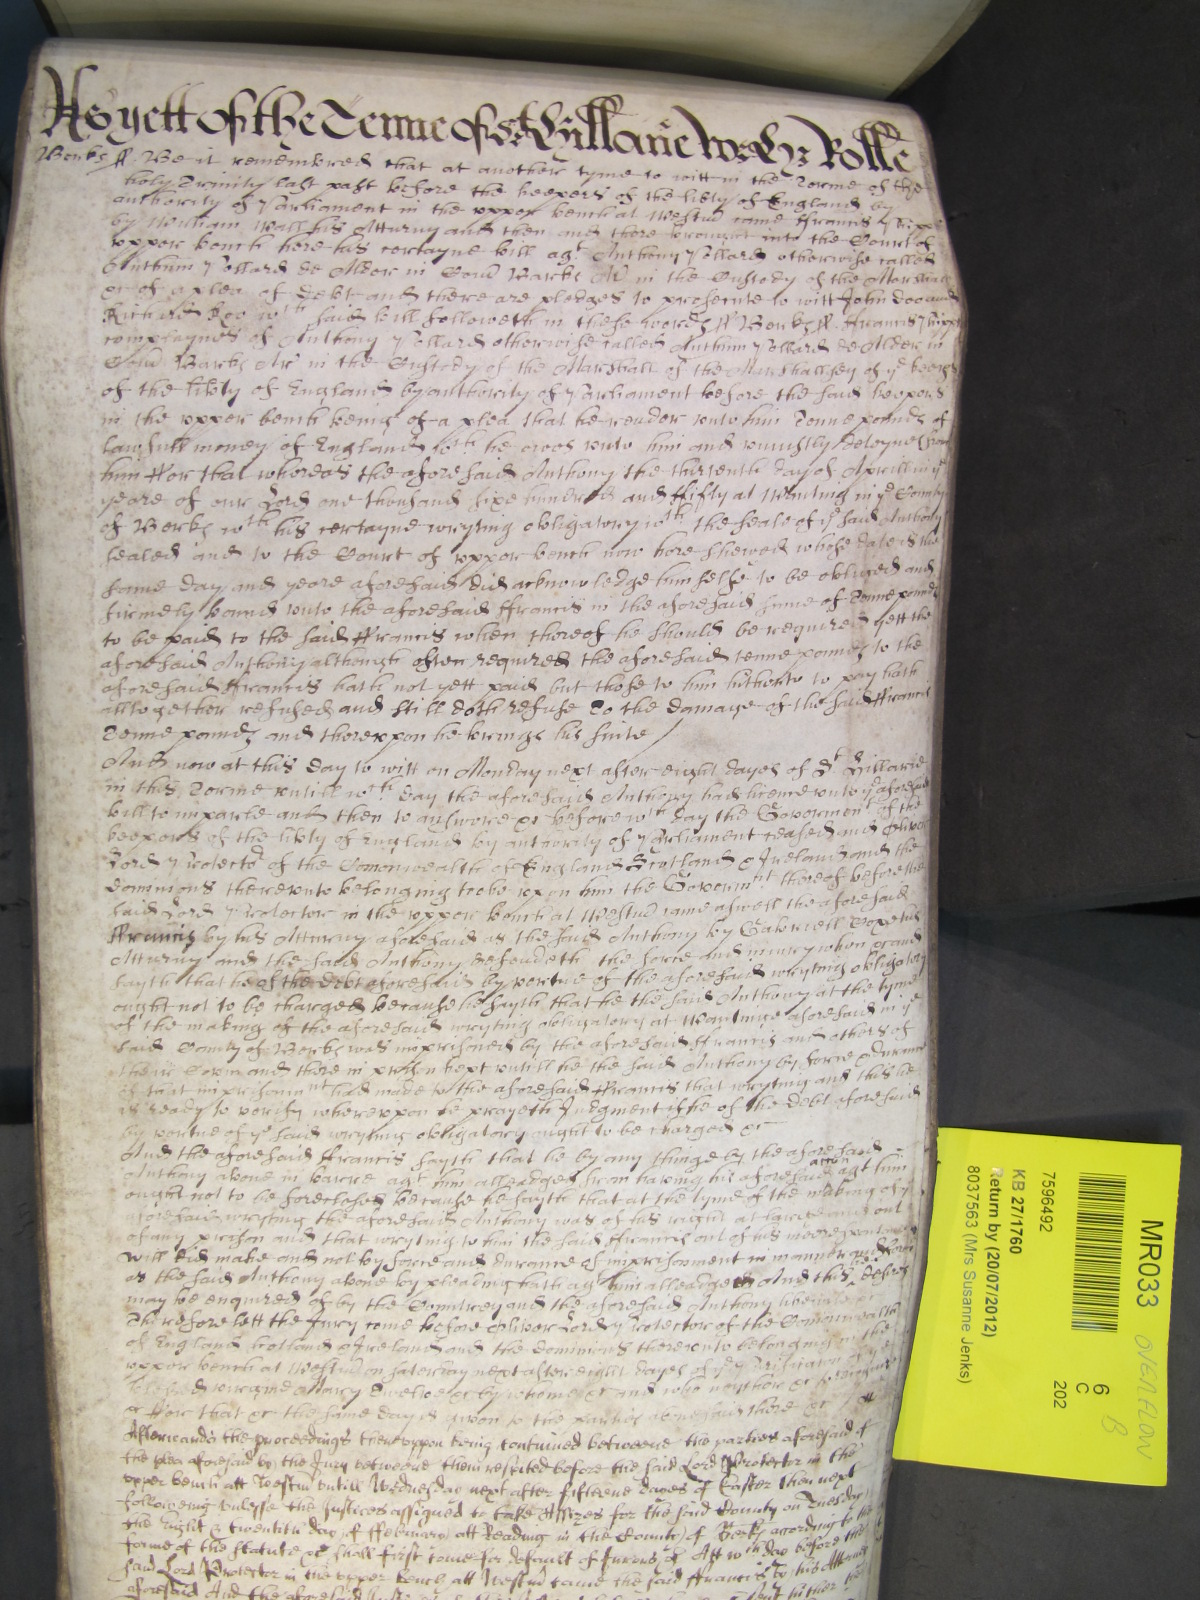 As yett of the Terme of St Hillarie
Berks ss. Be it remembred that at another tyme to witt in the Terme of the
holy Trinity last past before the keepers of the liberty of England by
authority of Parliament in the upper bench at Westm came Francis
by William Wall his Atturny and then and there brought into the Court of
upper bench here his certayne bill agt Anthony Pollard otherwise called
Anthum Pollard de in Com Barks Ar in the Custody of the Marshall
&c of a plea of debt and there are pledges to prosecute to witt John Doo and
Richard Roo wch said bill followeth in these words ss Berks ss. Francis
complaynes of Anthony Pollard otherwise called Anthum Pollard de in
Com Barks Ar in the Custody of the Marshall of the Marshallsey of ye keepers
of the liberty of England by authority of Parliament before the said keepers
in the upper bench being of a plea that he render unto him Tenne pounds of
lawfull money of England wch he owes unto him and unjustly deteynes from
him For that whereas the aforesaid Anthony the thirtenth day of Aprill in ye
yeare of our Lord one thousand sixe hundred and fifty at Wanting in ye County
of Berks wth his certayne wryting obligatory wth the seale of ye said Anthony
sealed and to the Court of upper bench now here shewed whose date is the
same day and yeare aforesaid did acknowledge himselfe to be obliged and
firmely bound unto the aforesaid Francis in the aforesaid summe of Tenne pounds
to be paid to the said Francis when thereof he should be required yett the
aforesaid Anthony although often required the aforesaid tenne pounds to the
aforesaid Francis hath not yett paid but those to him hitherto to pay hath
alltogether refused and still doth refuse To the damage of the said Francis
Tenne pounds and thereupon he brings his suite /
And now at this day to witt on Monday next after eight dayes of St Hillarie
in this Terme untill wch day the aforesaid Anthony had licence unto ye aforesaid
bill to imparle and then to answere &c before wch day the Goverment of the
keepers of the liberty of England by authority of Parliament ceased and Oliver
Lord Protector of the Comonwealth of England Scotland & Ireland and the
dominions thereunto belonging tooke upon him the Govermt thereof before the
said Lord Protector in the upper bench at Westm came aswell the aforesaid
Francis by his Atturny aforesaid as the said Anthony by Gabriell
Atturny and the said Anthony defendeth the force and injury when &c and
sayth that he of the debt aforesaid by vertue of the aforesaid wryting obligatory
ought not to be charged because he sayth that he the said Anthony at the tyme
of the making of the aforesaid wryting obligatory at Wantinge aforesaid in ye
said County of Berks was imprisoned by the aforesaid Francis and others of
their Covin and there in prison kept untill he the said Anthony by force & durance
of that imprisonmt had made to the aforesaid Francis that wryting and this he
is ready to verify whereupon he prayeth Judgment if he of the debt aforesaid
by vertue of ye said wryting obligatory ought to be charged &c
And the aforesaid Francis sayth that he by any thinge by the aforesaid
Anthony above in barre agt him alleadged from having his aforesaid accon agt him
ought not to be foreclosed because he sayth that at the tyme of the making of ye
aforesaid wryting the aforesaid Anthony was of his right at large and out
of any prison and that wryting to him the said Francis out of his meere
will did make and not by force and durance of imprisonment in manner and forme
as the said Anthony above by pleading hath agt him alleadged And this he desires
may be enquired of by the Countrey and the aforesaid Anthony likewise &c
Therefore lett the Jury come before Oliver Lord Protector of the Comonwealth
of England Scotland & Ireland and the dominions thereunto belonging in the
upper bench at Westm on Saterday next after eight dayes of ye Purificacon of ye
blessed virgine Mary Twelve &c by whome &c and who neyther &c
&c For that &c the same day is given to the parties aforesaid there &c
Afterwards the proceedings thereuppon being continued betweene the parties aforesaid of
the plea aforesaid by the Jury betweene them respited before the said Lord Protector in the
upper bench att Westm untill Wednesday next after fifteene dayes of Easter then next
following unlesse the Justices assigned to take Assizes for the said County on Tuesday
the Eight & twentith day of February att Reading in the County of Berks according to the
forme of the Statute &c shall first come for default of Jurors &c Att wch day before the
said Lord Protector in the upper bench att Westm came the said Francis by his Atturny
aforesaid And the aforesaid
MR033
OVERFLOW
B
6
C
202
7596492
KB 27/1760
Return by (20/07/2012)
8037563 (Mrs Susanne Jenks)